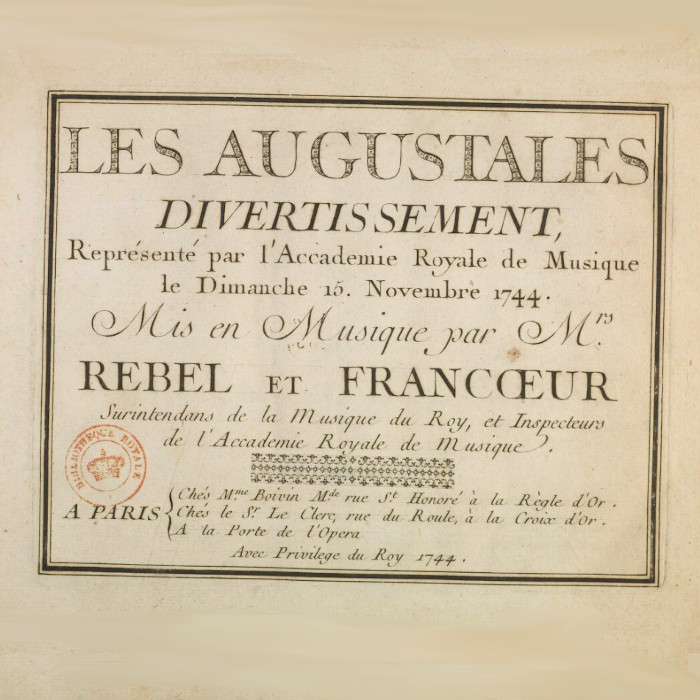 LES AUGUSTALES
DIVERTISSEMENT,
Représenté par l'Accademie Royale de Musique
le Dimanche 15. Novembre 1744.
Mis en Musique par M.rs
REBEL ET FRANCŒUR
Surintendans de la Musique du Roy, et Inspecteurs
de l'Accademie Royale de Musique.
BIBLIOTHEQUE ROYALE
A PARIS
Chés M.me Boivin M.de rue S.t Honoré à la Règle d'Or.
Chés le S.r Le Clerc, rue du Roule, à la Croix d'Or.
A la Porte de l'Opera
Avec Privilege du Roy 1744.